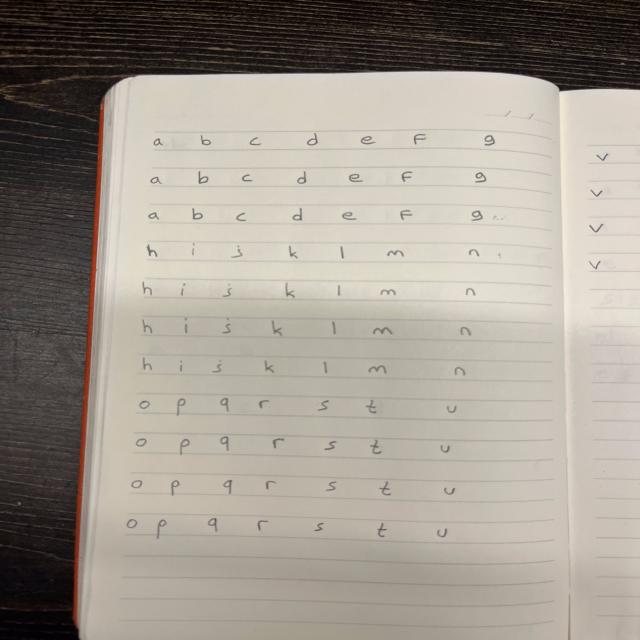 a b c d e f g
a b c d e f g
a b c d e f g
h i j k l m n
h i j k l m n
h i j k l m n
h i j k l m n
o p q r s t u
o p q r s t u
o p q r s t u
o p q r s t u
v
v
v
v